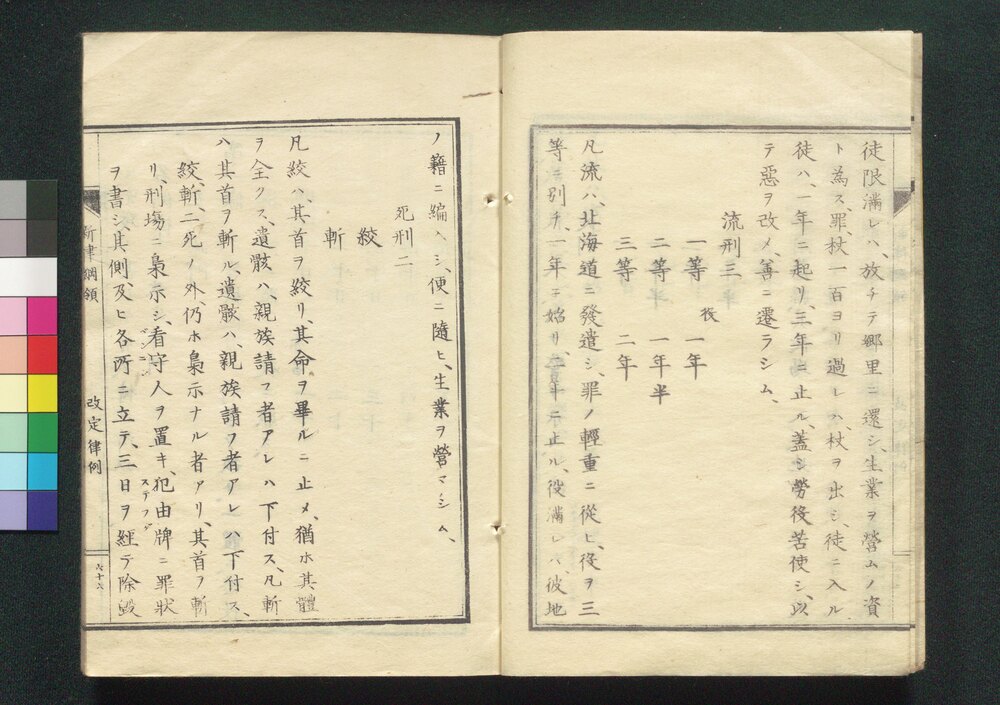 徒限滿レハ、放チテ郷里ニ還シ、生業ヲ營ムノ資
ト為ス、罪、杖一百ヨリ過レハ、杖ヲ出シ、徒ニ入ル、
徒ハ、一年ニ起リ、三年ニ止ル、蓋シ勞役苦使シ、以
テ惡ヲ改メ、善ニ遷ラシム、
流刑三
一等 役 一年
二等 一年半
三等 二年
凡流ハ、北海道ニ發遣シ、罪ノ輕重ニ從ヒ、役ヲ三
等ニ別チ、一年ニ始リ、二年ニ止ル、役滿レハ、彼地
ノ籍ニ編入シ、便ニ隨ヒ、生業ヲ營マシム、
死刑二
絞
斬
凡絞ハ、其首ヲ絞リ、其命ヲ畢ルニ止メ、猶ホ其體
ヲ全クス、遺骸ハ、親族請フ者アレハ下付ス、凡斬
ハ其首ヲ斬ル、遺骸ハ、親族請フ者アレハ下付ス、
絞、斬、二死ノ外、仍ホ梟示ナル者アリ、其首ヲ斬
リ、刑塲ニ梟示シ、看守人ヲ置キ、犯由牌ニ罪狀
バンニン
ステフダ
ヲ書シ、其側、及ヒ各所ニ立テ、三日ヲ經テ除毀
新律綱領 改定律例
六十六